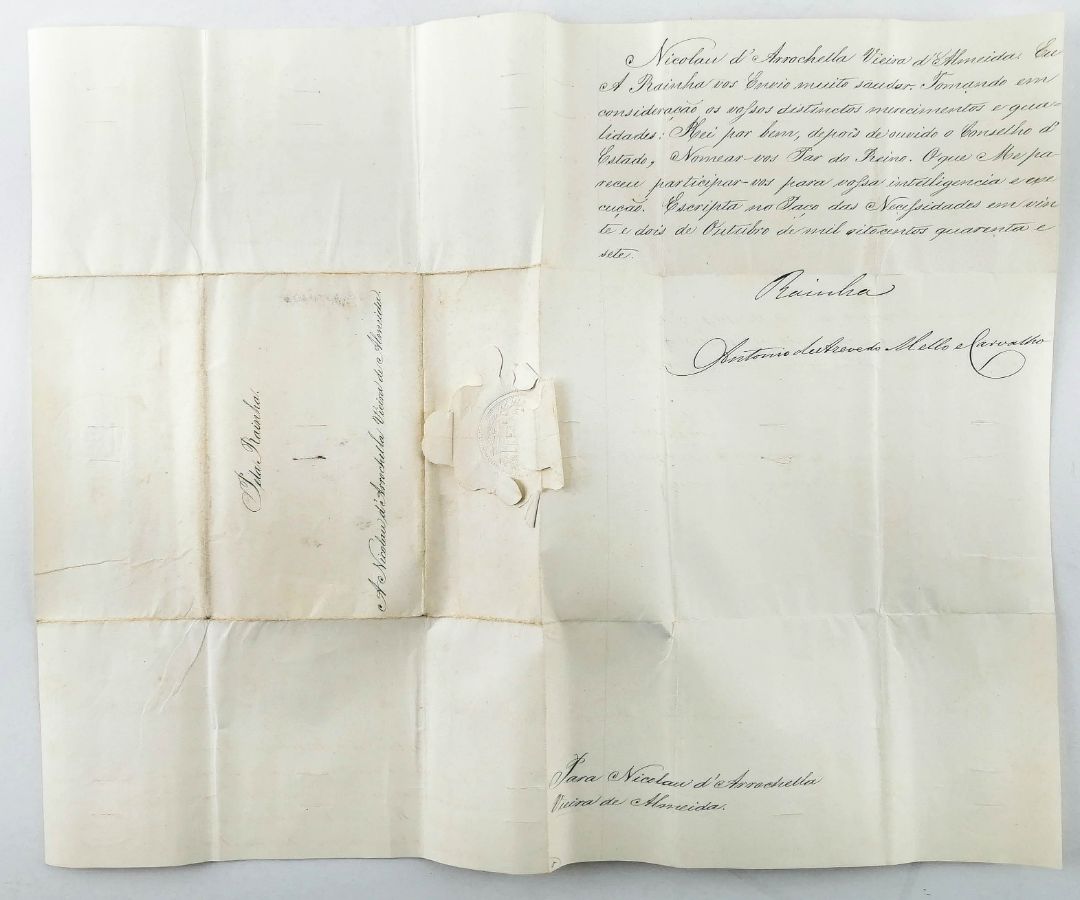 Nicolau d'Arrochella Vieira d'Almeida. Eu
A Rainha vos Envio muito saudar. Tomando em
consideração os vossos distinctos merecimentos e qua-
lidades: Hei por bem, depois de ouvido o Conselho d'
Estado, Nomear-vos Par do Reino. O que Me pa-
receu participar-vos para vossa intelligencia e exe
cução. Escripta no Paço das Necessidades em vin
te e dois de Outubro de mil oitocentos quarenta e
sete.
Rainha
Antonio de Azevedo Mello e Carvalho
Para Nicolau d'Arrochella
Vieira de Almeida.
Pela Rainha.
A Nicolau d'Arrochella Vieira de Almeida.